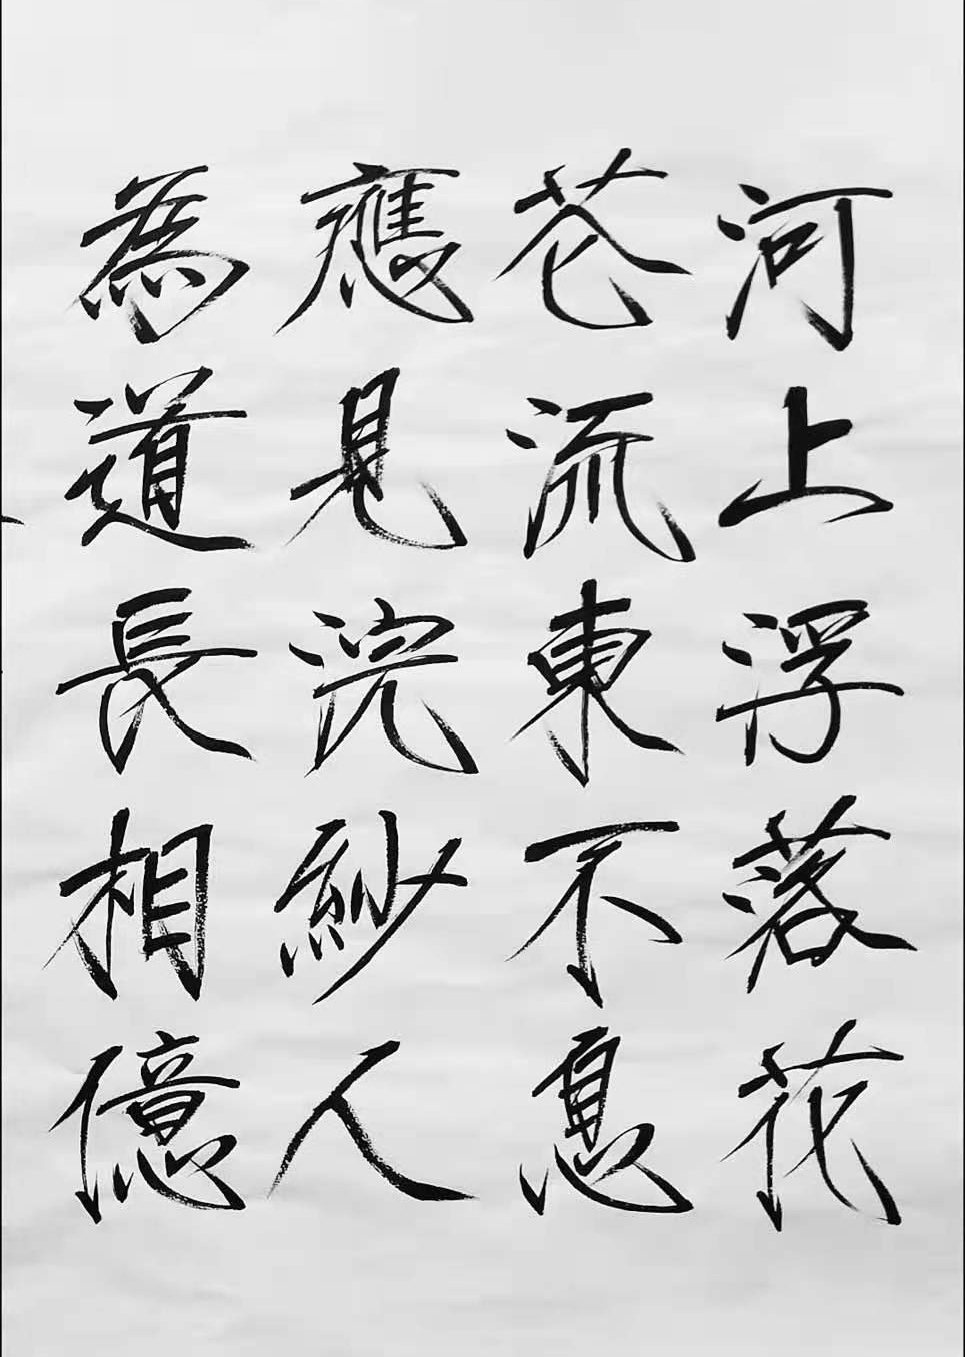 河上浮落花
芲流東不息
應見浣紗人
為道長相億